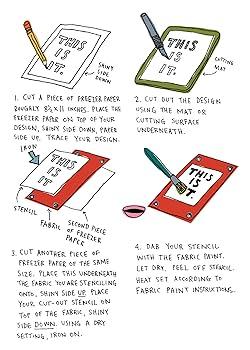 THIS
IS
IT.
SHINY
SIDE
DOWN
1. CUT A PIECE OF FREEZER PAPER
ROUGHLY 8½ X 11 INCHES. PLACE THE
FREEZER PAPER ON TOP OF YOUR
DESIGN, SHINY SIDE DOWN, PAPER
SIDE UP. TRACE YOUR DESIGN.
THIS
IS
IT.
CUTTING
MAT
2. CUT OUT THE DESIGN
USING THE MAT OR
CUTTING SURFACE
UNDERNEATH.
IRON
THIS
IS
IT
STENCIL
FABRIC
SECOND PIECE
OF FREEZER
PAPER
3. CUT ANOTHER PIECE OF
FREEZER PAPER OF THE SAME
SIZE. PLACE THIS UNDERNEATH
THE FABRIC YOU ARE STENCILING
ONTO, SHINY SIDE UP. PLACE
YOUR CUT-OUT STENCIL ON
TOP OF THE FABRIC, SHINY
SIDE DOWN. USING A DRY
SETTING, IRON ON.
THIS
IS
IT.
4. DAB YOUR STENCIL
WITH THE FABRIC PAINT.
LET DRY. PEEL OFF STENCIL.
HEAT SET ACCORDING TO
FABRIC PAINT INSTRUCTIONS.